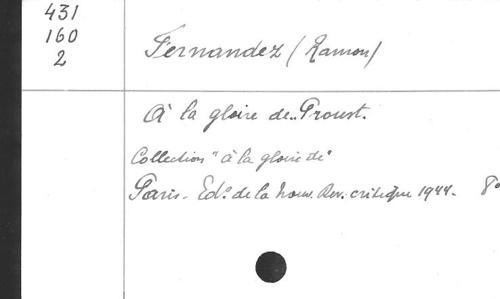 431
160
2
Fernandez (Ramon)
À la gloire de.. Proust.
Collection "à la gloire de"
Paris. Edº de la nouv. Rev. critique 1944. 8º